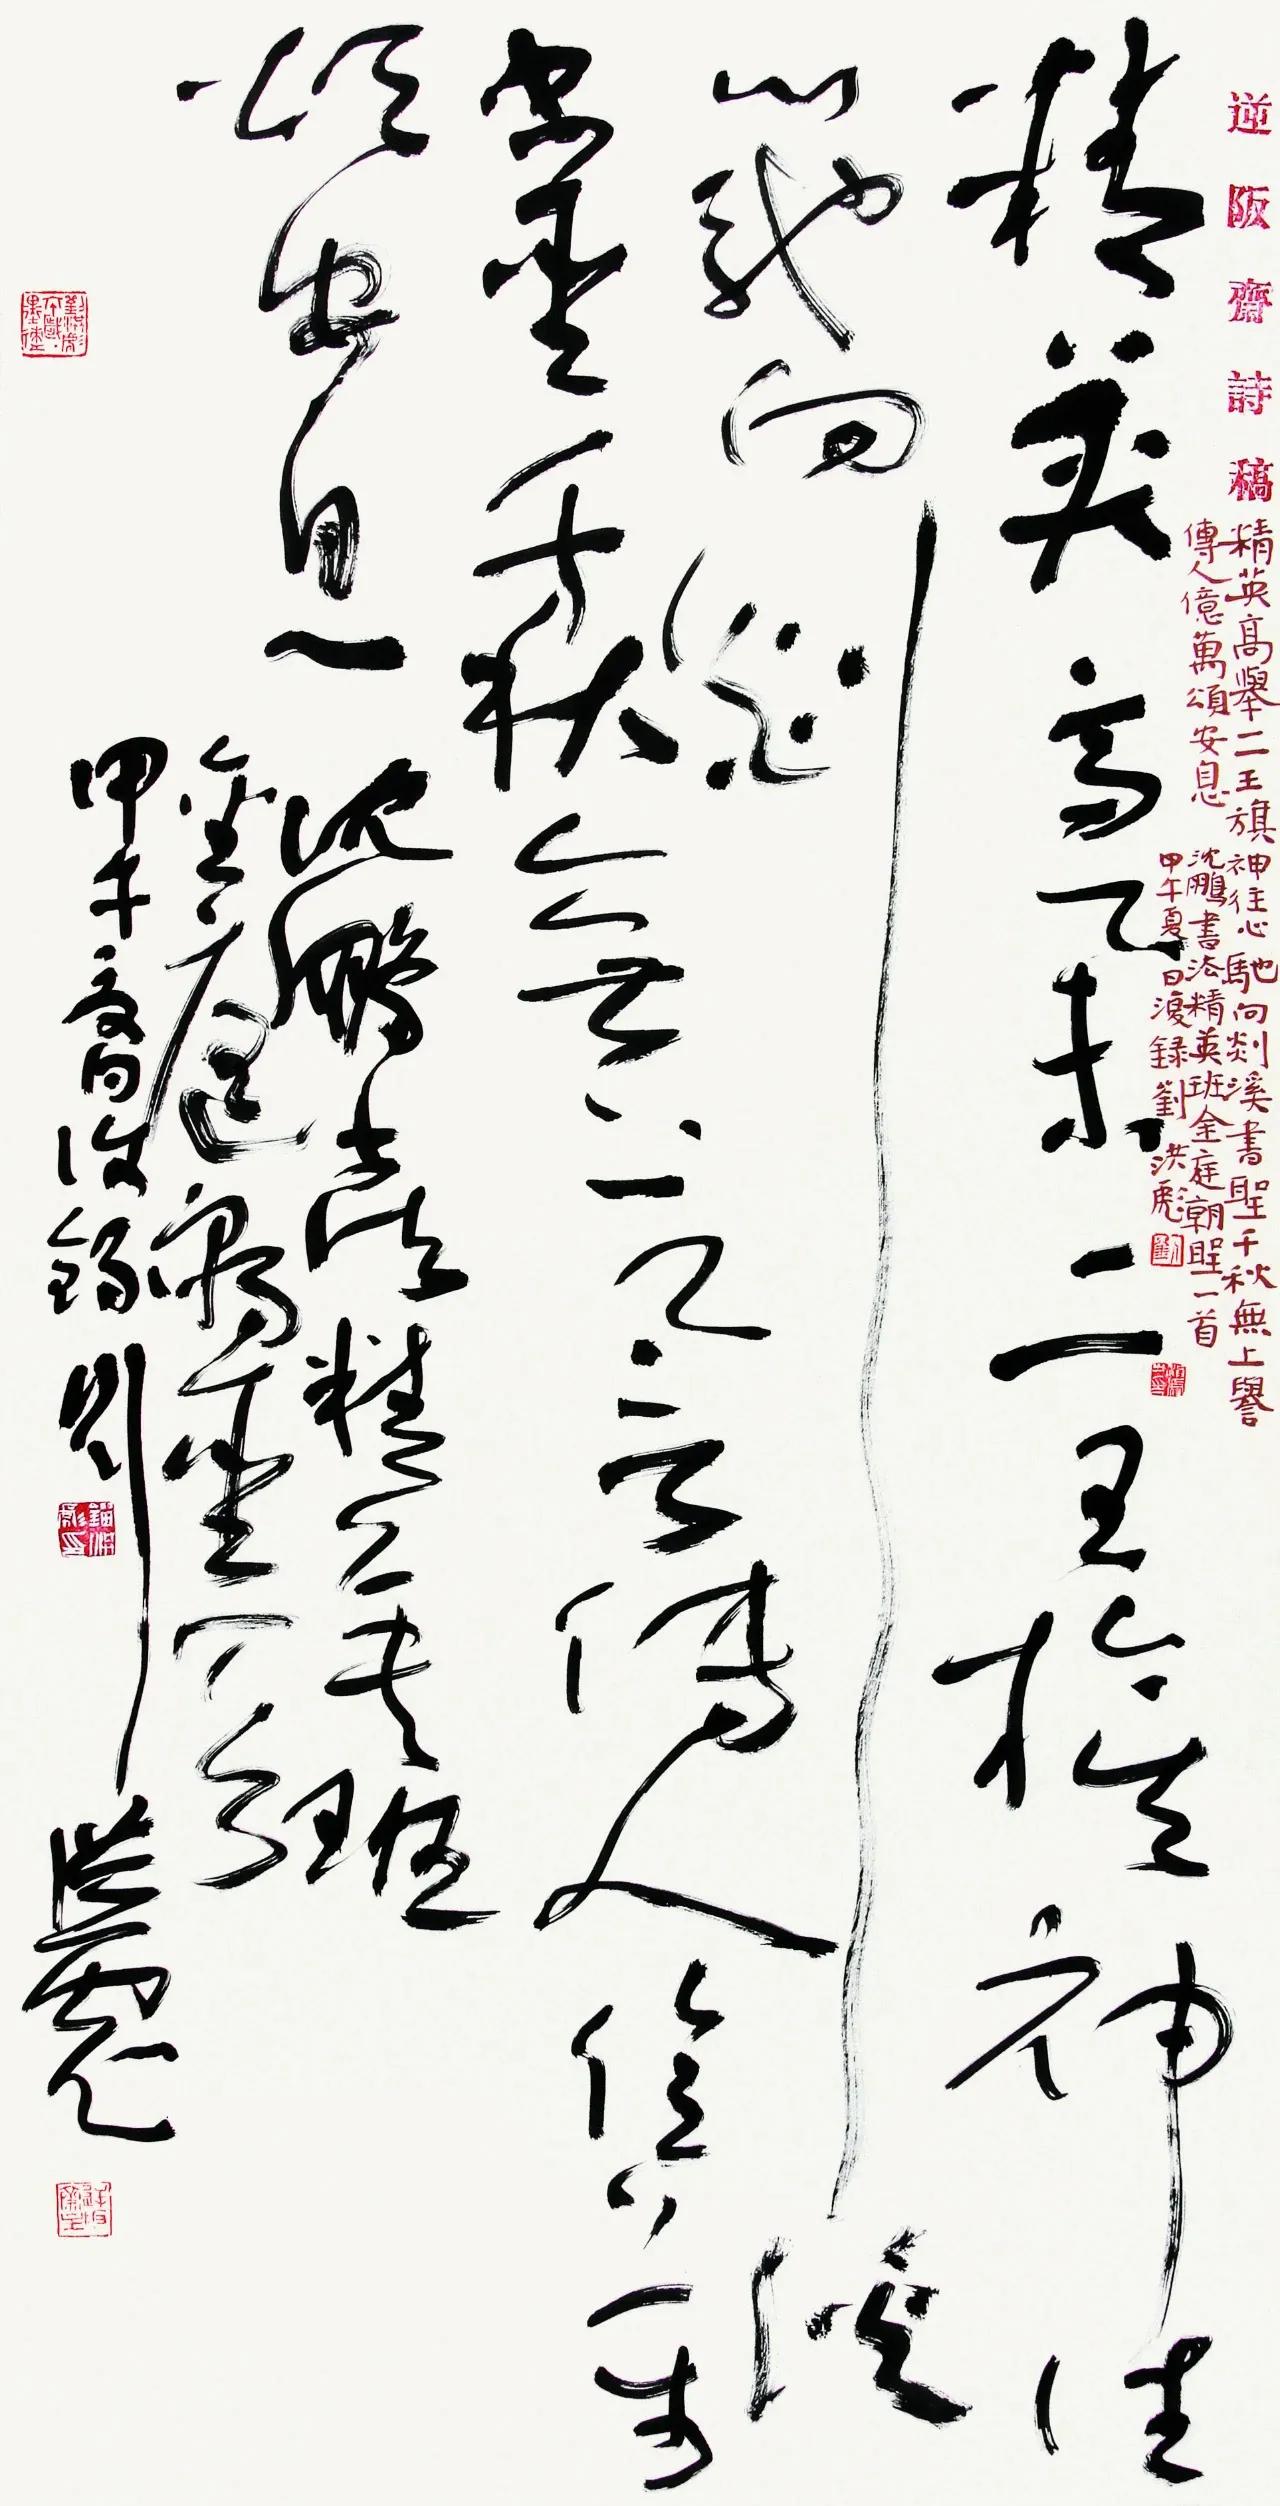 逆阪齋詩稿
精英高舉二王旗神往心馳向剡溪書聖千秋無上譽
傳人億萬頌安息
沈鵬書法精英班金庭朝聖一首
甲午夏日復錄劉洪彪
精英高舉二王旗神往
心馳向剡溪
書聖千秋無上譽傳人億萬
頌安息
沈鵬書法精英班
金庭朝聖一首
甲午夏日復錄劉洪彪